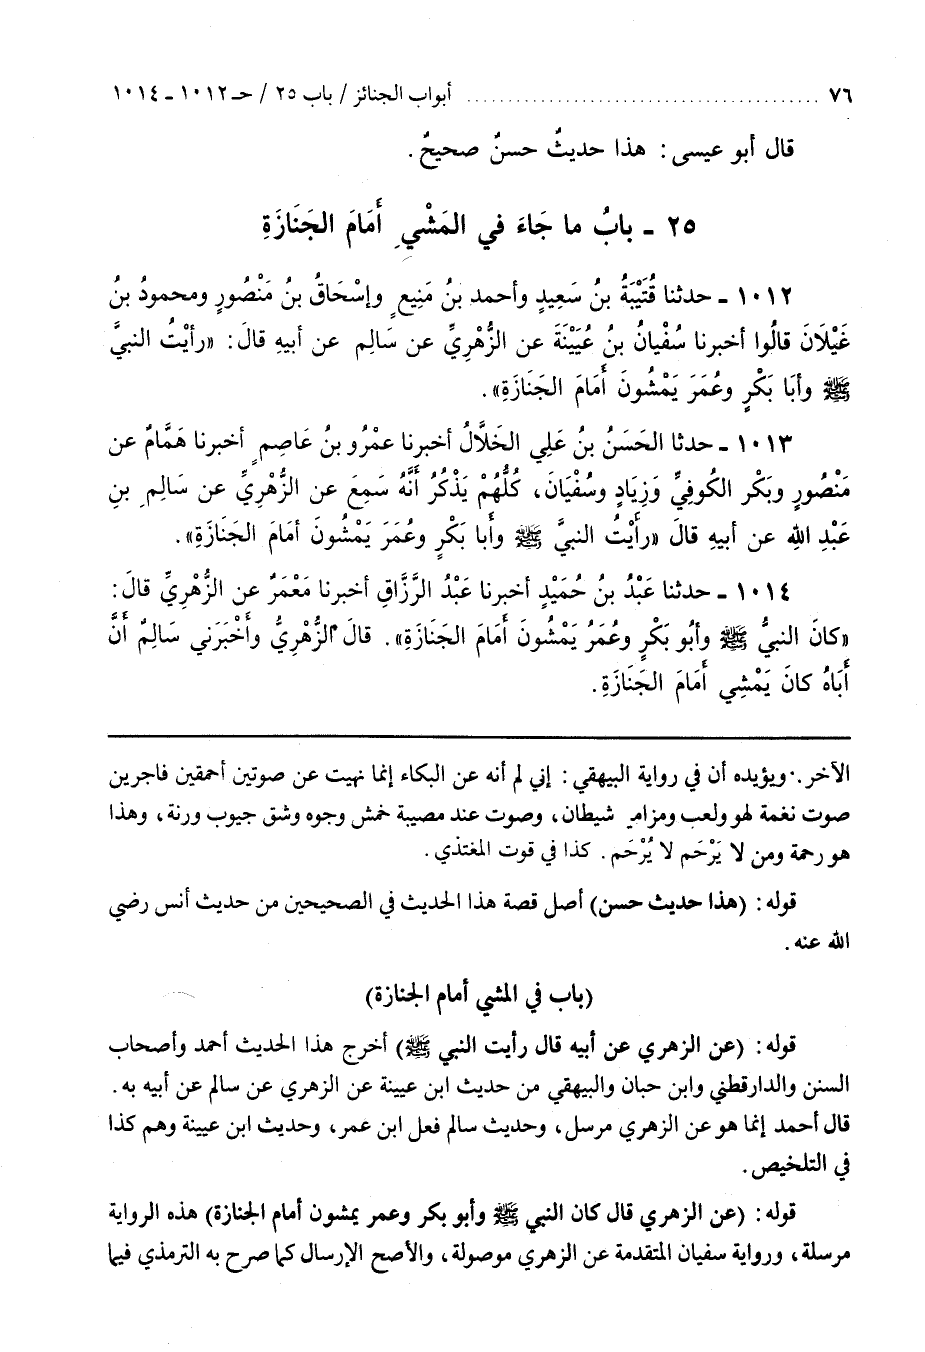 ٧٦ ........................................ أبواب الجنائز / باب ٢٥ / حـ ١٠١٢ ـ ١٠١٤
قال أبو عيسى: هذا حديثٌ حسنٌ صحيحٌ.
٢٥ ـ بابُ ما جَاءَ في المَشْيِ أَمَامَ الجَنَازَةِ
١٠١٢ ـ حدثنا قُتَيْبَةُ بنُ سَعِيدٍ وأحمد بنُ مَنِيعٍ وإسْحَاقُ بنُ مَنْصُورٍ ومحمودُ بنُ
غَيْلَانَ قالُوا أخبرنا سُفْيانُ بنُ عُيَيْنَةَ عن الزُّهْرِيِّ عن سَالِم عن أبيهِ قالَ: «رأيْتُ النبيَّ
ﷺ وأبَا بَكْرٍ وعُمَرَ يَمْشُونَ أَمَامَ الجَنَازَةِ».
١٠١٣ ـ حدثا الحَسَنُ بنُ عَلِي الخَلَّالُ أخبرنا عمْرُو بنُ عَاصِمٍ أخبرنا هَمَّامٌ عن
مَنْصُورٍ وبَكْر الكُوفِيِّ وَزِيَادٍ وسُفْيَانَ، كُلُّهُمْ يَذْكُرُ أنَّهُ سَمِعَ عن الزُّهْرِيِّ عن سَالِمِ بنِ
عَبْدِ اللهِ عن أبيهِ قالَ «رأَيْتُ النبيَّ ﷺ وأبا بَكْرٍ وعُمَرَ يَمْشُونَ أمَامَ الجَنَازَةِ».
١٠١٤ ـ حدثنا عَبْدُ بنُ حُمَيْدٍ أخبرنا عَبْدُ الرَّزَّاقِ أخبرنا مَعْمَرٌ عن الزُّهْرِيِّ قالَ:
«كانَ النبيُّ ﷺ وأبُو بَكْرٍ وعُمَرُ يَمْشُونَ أَمَامَ الجَنَازَةِ». قالَ الزُّهْرِيُّ وأَخْبَرَني سَالِمٌ أَنَّ
أَبَاهُ كانَ يَمْشِي أَمَامَ الجَنَازَةِ.
الآخر. ويؤيده أن في رواية البيهقي: إني لم أنه عن البكاء إنما نهيت عن صوتين أحمقين فاجرين
صوت نغمة لهو ولعب ومزامير شيطان، وصوت عند مصيبة خمش وجوه وشق جيوب ورنة، وهذا
هو رحمة ومن لا يَرْحَم لا يُرْحَم. كذا في قوت المغتذي.
قوله: (هذا حديث حسن) أصل قصة هذا الحديث في الصحيحين من حديث أنس رضي
الله عنه.
(باب في المشي أمام الجنازة)
قوله: (عن الزهري عن أبيه قال رأيت النبي ﷺ) أخرج هذا الحديث أحمد وأصحاب
السنن والدارقطني وابن حبان والبيهقي من حديث ابن عيينة عن الزهري عن سالم عن أبيه به.
قال أحمد إنما هو عن الزهري مرسل، وحديث سالم فعل ابن عمر، وحديث ابن عيينة وهم كذا
في التلخيص.
قوله: (عن الزهري قال كان النبي ﷺ وأبو بكر وعمر يمشون أمام الجنازة) هذه الرواية
مرسلة، ورواية سفيان المتقدمة عن الزهري موصولة، والأصح الإرسال كما صرح به الترمذي فيما